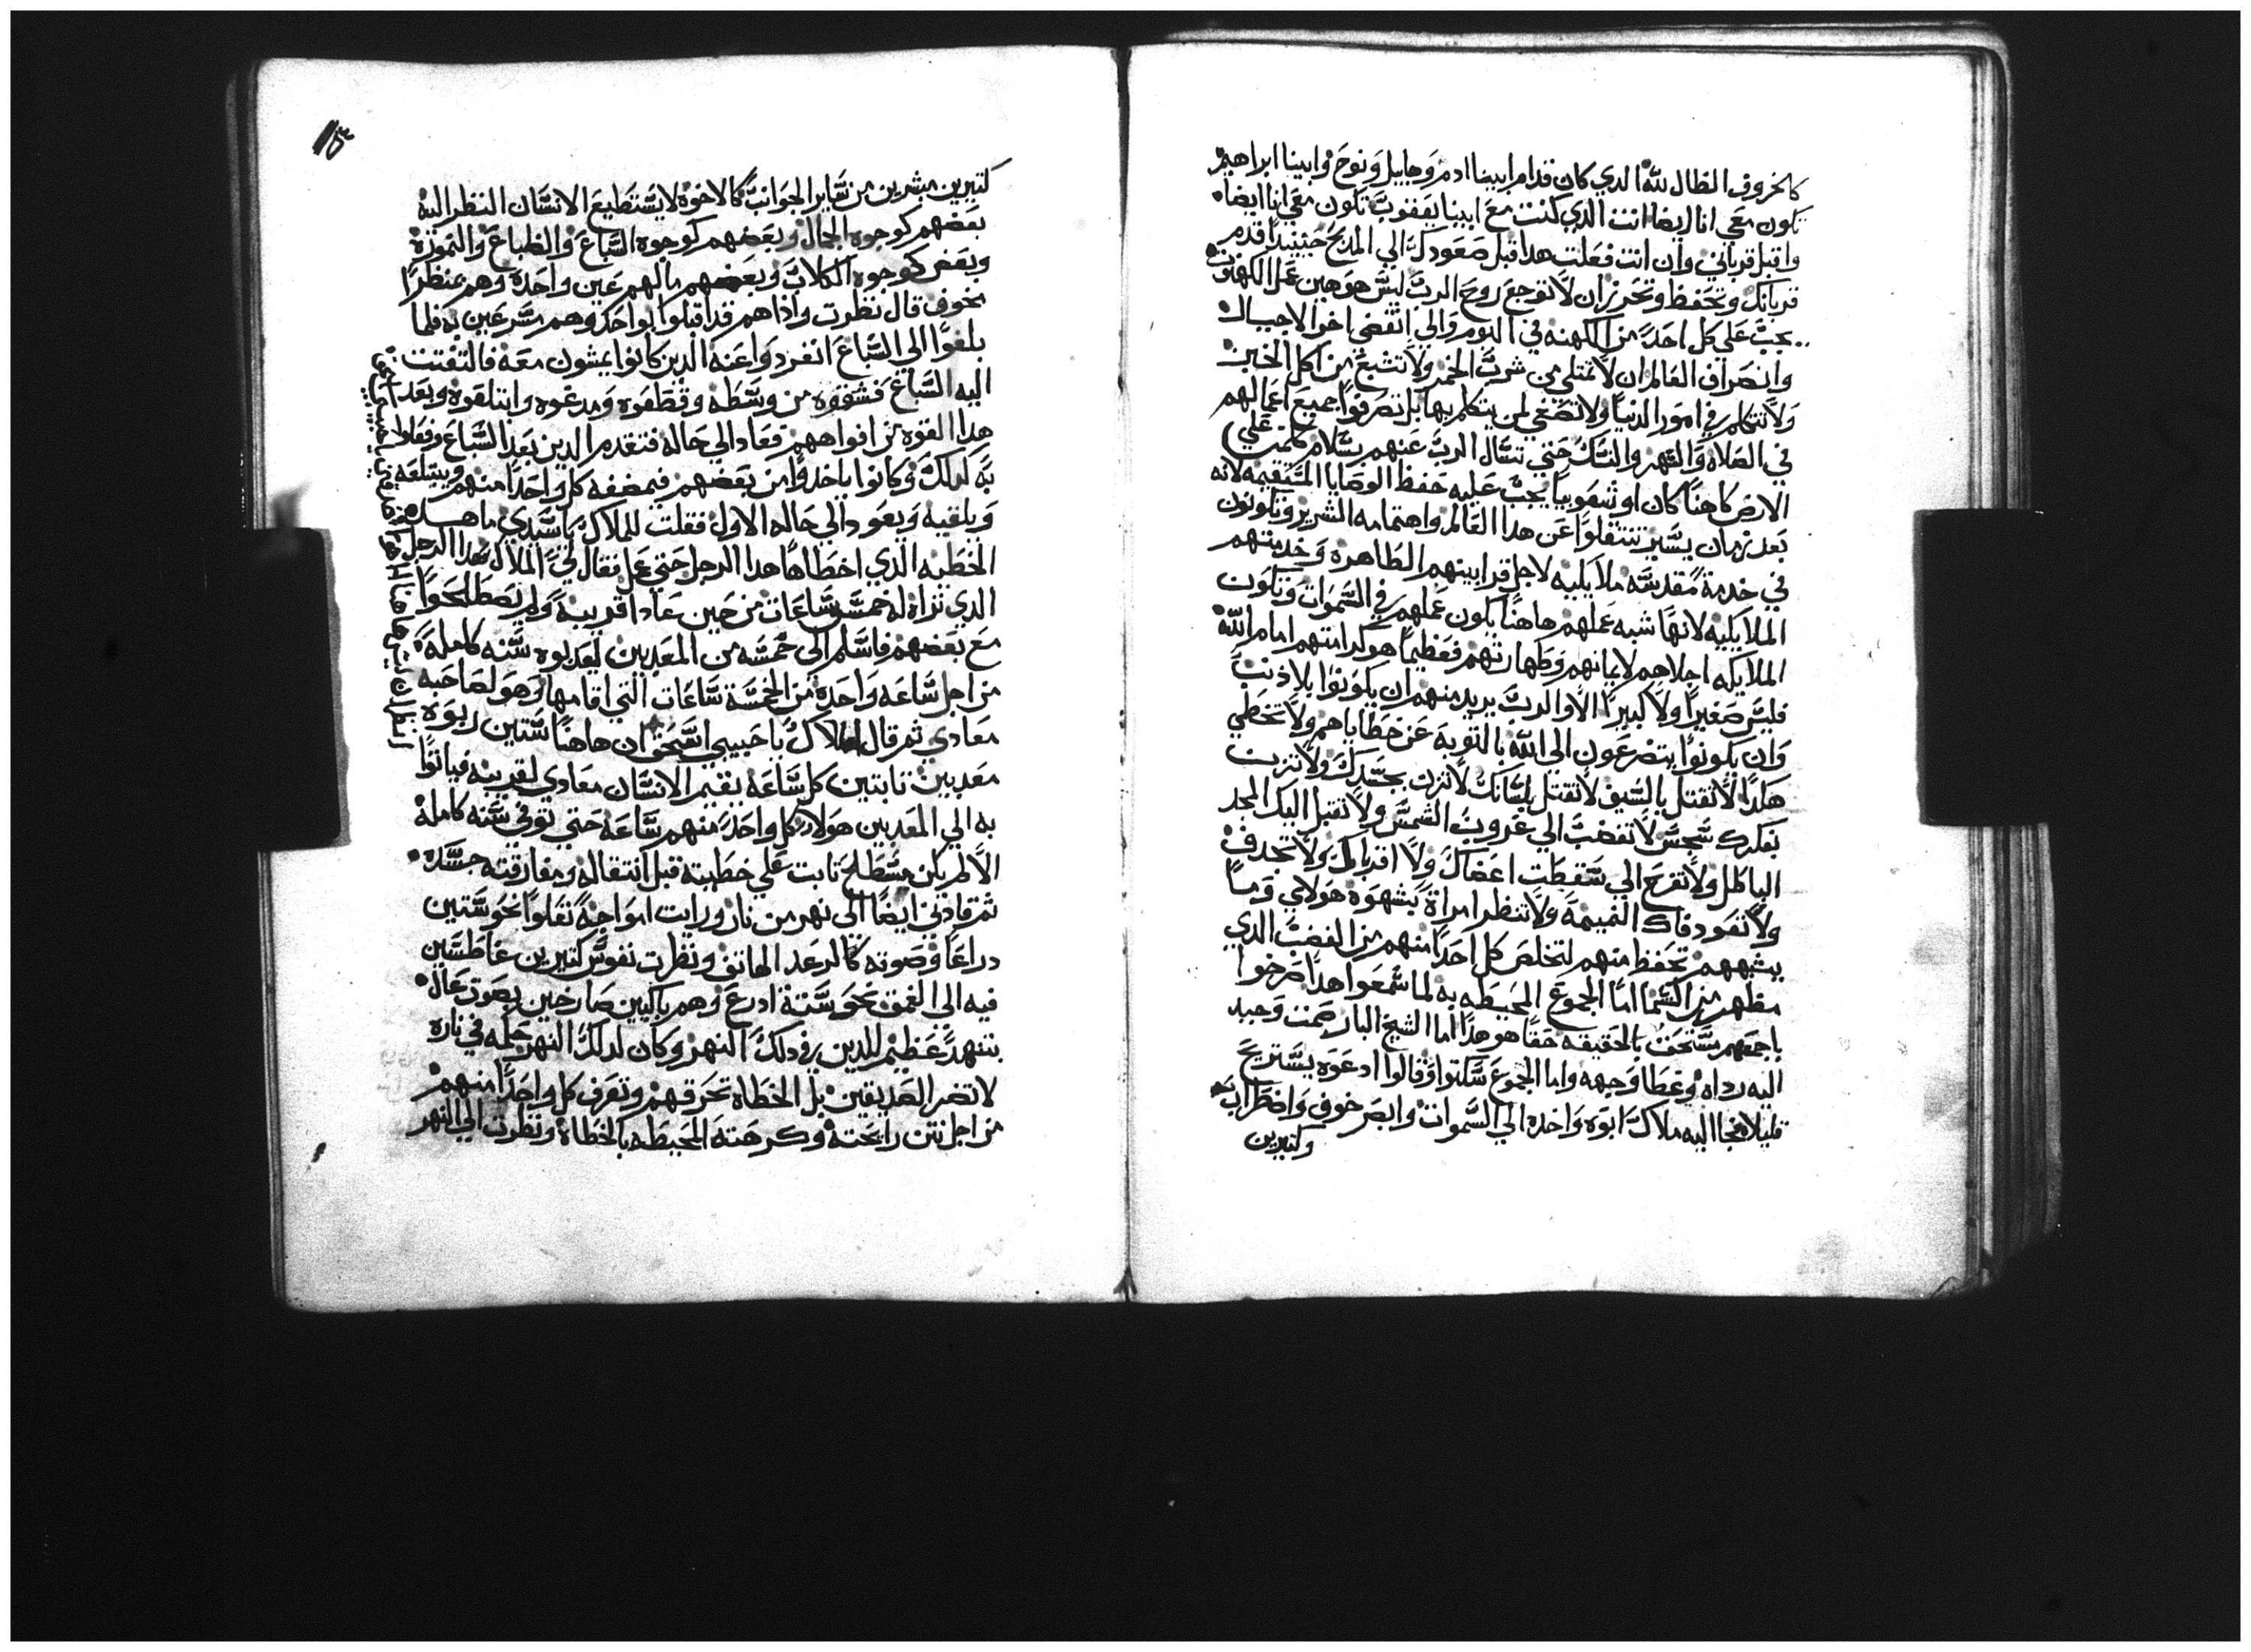 كالخروف الضال لله الدي كان قدام ابينا ادم وهابيل ونوح وابينا ابراهيم
تكون معي انا ايضا انت الدي كنت مع ابينا يعقوب تكون معي انا ايضا
واقبل قرباني وان انت فعلت هدا قبل صعودك الي المدبح حينيدا قدم
قربانك وتحفظ وتحرز ان لا توجع روح الرب ليس هو هين عمل الكهنوت
يجب علي كل احد من الكهنه في اليوم والي انقضي اخر الاجيال
وانصراف العالم ان لا تمتلي من شرب الخمر ولا تشبع من اكل الخبز
ولا تتكلم في امور الدنيا ولا تصغي لمن يتكلم بها بل تصرفوا جميع اعمالهم
في الصلاه والسهر والنسك حتي تسال الرب عنهم بسلام كلمن علي
الارض كاهنا كان او شعوبيا يجب عليه حفظ الوصايا المستقيمه لانه
بعد زمان يسير تنتقلوا عن هدا العالم واهتمامه الشرير وتكونون
في خدمة مقدسه ملايكيه لاجل قرابينهم الطاهره وخدمتهم
الملايكيه لانها شبه عملهم هاهنا يكون عملهم في السموات وتكون
الملايكه اجلاهم لايمانهم وطهارتهم فعظيما هو كرامتهم امام الله
فليس صغيرا ولا كبيرا الا والرب يريد منهم ان يكونوا بلا دنب
وان يكونوا يتضرعون الي الله بالتوبة عن خطاياهم ولا تخطي
هكدا لا تقتل بالسيف لا تقتل بلسانك لا تزن بجسدك ولا تزن
بفكرك تنجس لا تغضب الي غروب الشمس ولا تقبل اليك المجد
الباطل ولا تفرح الي سقطت اعضاك ولا اقرباك ولا تجدف
ولا تعود فاك النميمة ولا تنظر امراة بشهوه هولاي وما
يشبههم تحفظ منهم لتخلص كل احدا منهم من الغضب الدي
مظهر من السما اما الجموع المحيطه به لما سمعوا هدا صرخوا
باجمعهم مستحق بالحقيقه حقا هو هدا اما الشيخ البار صمت وجبد
اليه رداه وغطا وجهه واما الجموع سكتوا وقالوا ادعوه يستريح
قليلا فجا اليه ملاك ابوه واخده الي السموات وابصر خوف واضطراب
وكتيرين
كتيرين مبشرين من ساير الجوانب كالاخوة لا يستطيع الانسان النظر اليه
بعضهم كوجوه الجمال وبعضهم كوجوه السباع والضباع والنموره
وبعض كوجوه الكلاب وبعضهم مالهم عين واحده وهم منظرا
مخوف قال نظرت وادا هم قد اقبلوا بواحد وهم مسرعين به فلما
بلغوا الي السباع انفردوا عنه الدين كانوا يمشون معه فالتفتت
اليه السباع فشقوه من وسطه وقطعوه ومدغوه وابتلعوه وبعد
هدا القوه من افواههم فعاد الي حاله فتقدم الدين بعد السباع وفعلوا
به كدلك وكانوا ياخدوا من بعضهم فيمضغه كل واحدا منهم ويبتلعه
ويلقيه ويعود الي حاله الاول فقلت للملاك يا سيدي ما هده
الخطيه الدي اخطاها هدا الرجل حتي عمل فقال لي الملاك هدا الرجل
الدي تراه له خمسه ساعات من حين عادا قريبه ولم يصطلحوا
مع بعضهم فاسلم الي خمسه من المعدبين ليعدبوه سنه كامله
من اجل ساعه واحده من الخمسة ساعات التي اقامها وهو لصاحبه
معادي تم قال الملاك يا حبيبي اسحق ان هاهنا ستين ربوه
معدبين تابتين كل ساعه يقيم الانسان معادي لقريبه فياتوا
به الي المعدبين هولاء كل واحد منهم ساعه حتي توفي سنه كامله
الا لم يكن مسطلح تابت علي خطيته قبل انتقاله ومفارقته جسده
تم قادني ايضا الي نهر من نار ورايت امواجه تعلوا نحو ستين
دراعا وصوته كالرعد الهاتف ونظرت نفوس كتيرين غاطسين
فيه الي العمق نحو ستة ادرع وهم باكيين صارخين بصوت عال
بتنهد عظيم للدين في دلك النهر وكان لدلك النهر حكمه في ناره
لا تضر الصديقين بل الخطاه تحرقهم وتعرف كل واحدا منهم
من اجل نتن رايحته وكرهته المحيطه بالخطاة ونظرت الي النهر